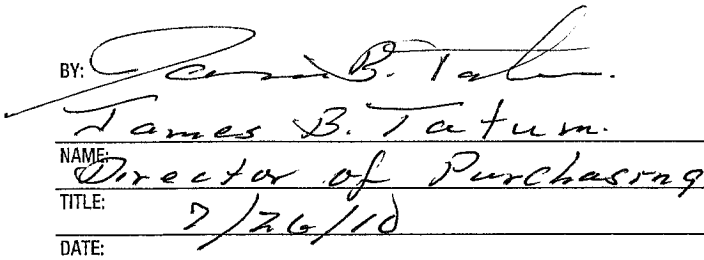 BY: James B. Tatum.
James B. Tatum.
NAME:
Director of Purchasing
TITLE:
7/26/10
DATE: